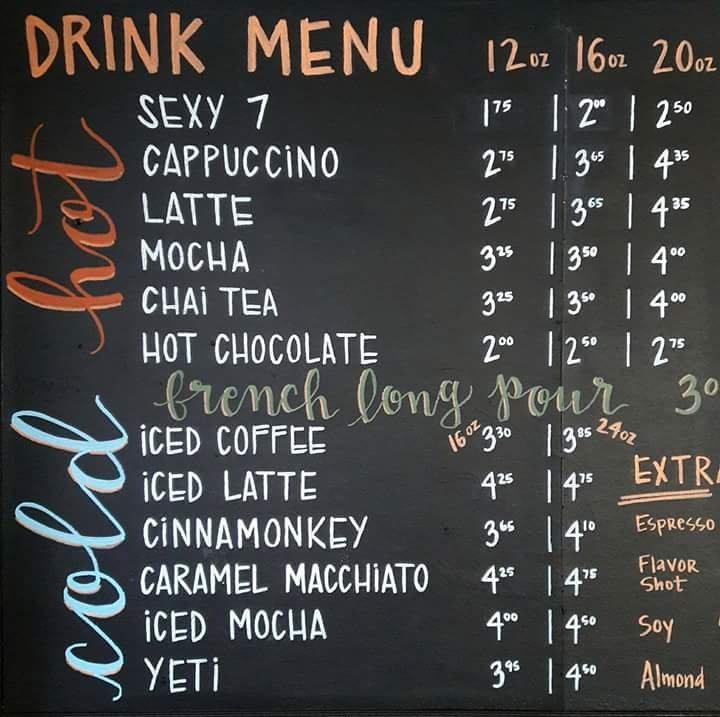 DRINK MENU 12oz 16oz 20oz
hot
SEXY 7 1.75 | 2.00 | 2.50
CAPPUCCINO 2.75 | 3.65 | 4.35
LATTE 2.75 | 3.65 | 4.35
MOCHA 3.25 | 3.50 | 4.00
CHAI TEA 3.25 | 3.50 | 4.00
HOT CHOCOLATE 2.00 | 2.50 | 2.75
french long pour
cold
ICED COFFEE 16oz 3.30 | 3.85 24oz
ICED LATTE 4.25 | 4.75
CINNAMONKEY 3.65 | 4.10
CARAMEL MACCHIATO 4.25 | 4.75
ICED MOCHA 4.00 | 4.50
YETI 3.95 | 4.50
EXTRA
Espresso
Flavor
Shot
Soy
Almond